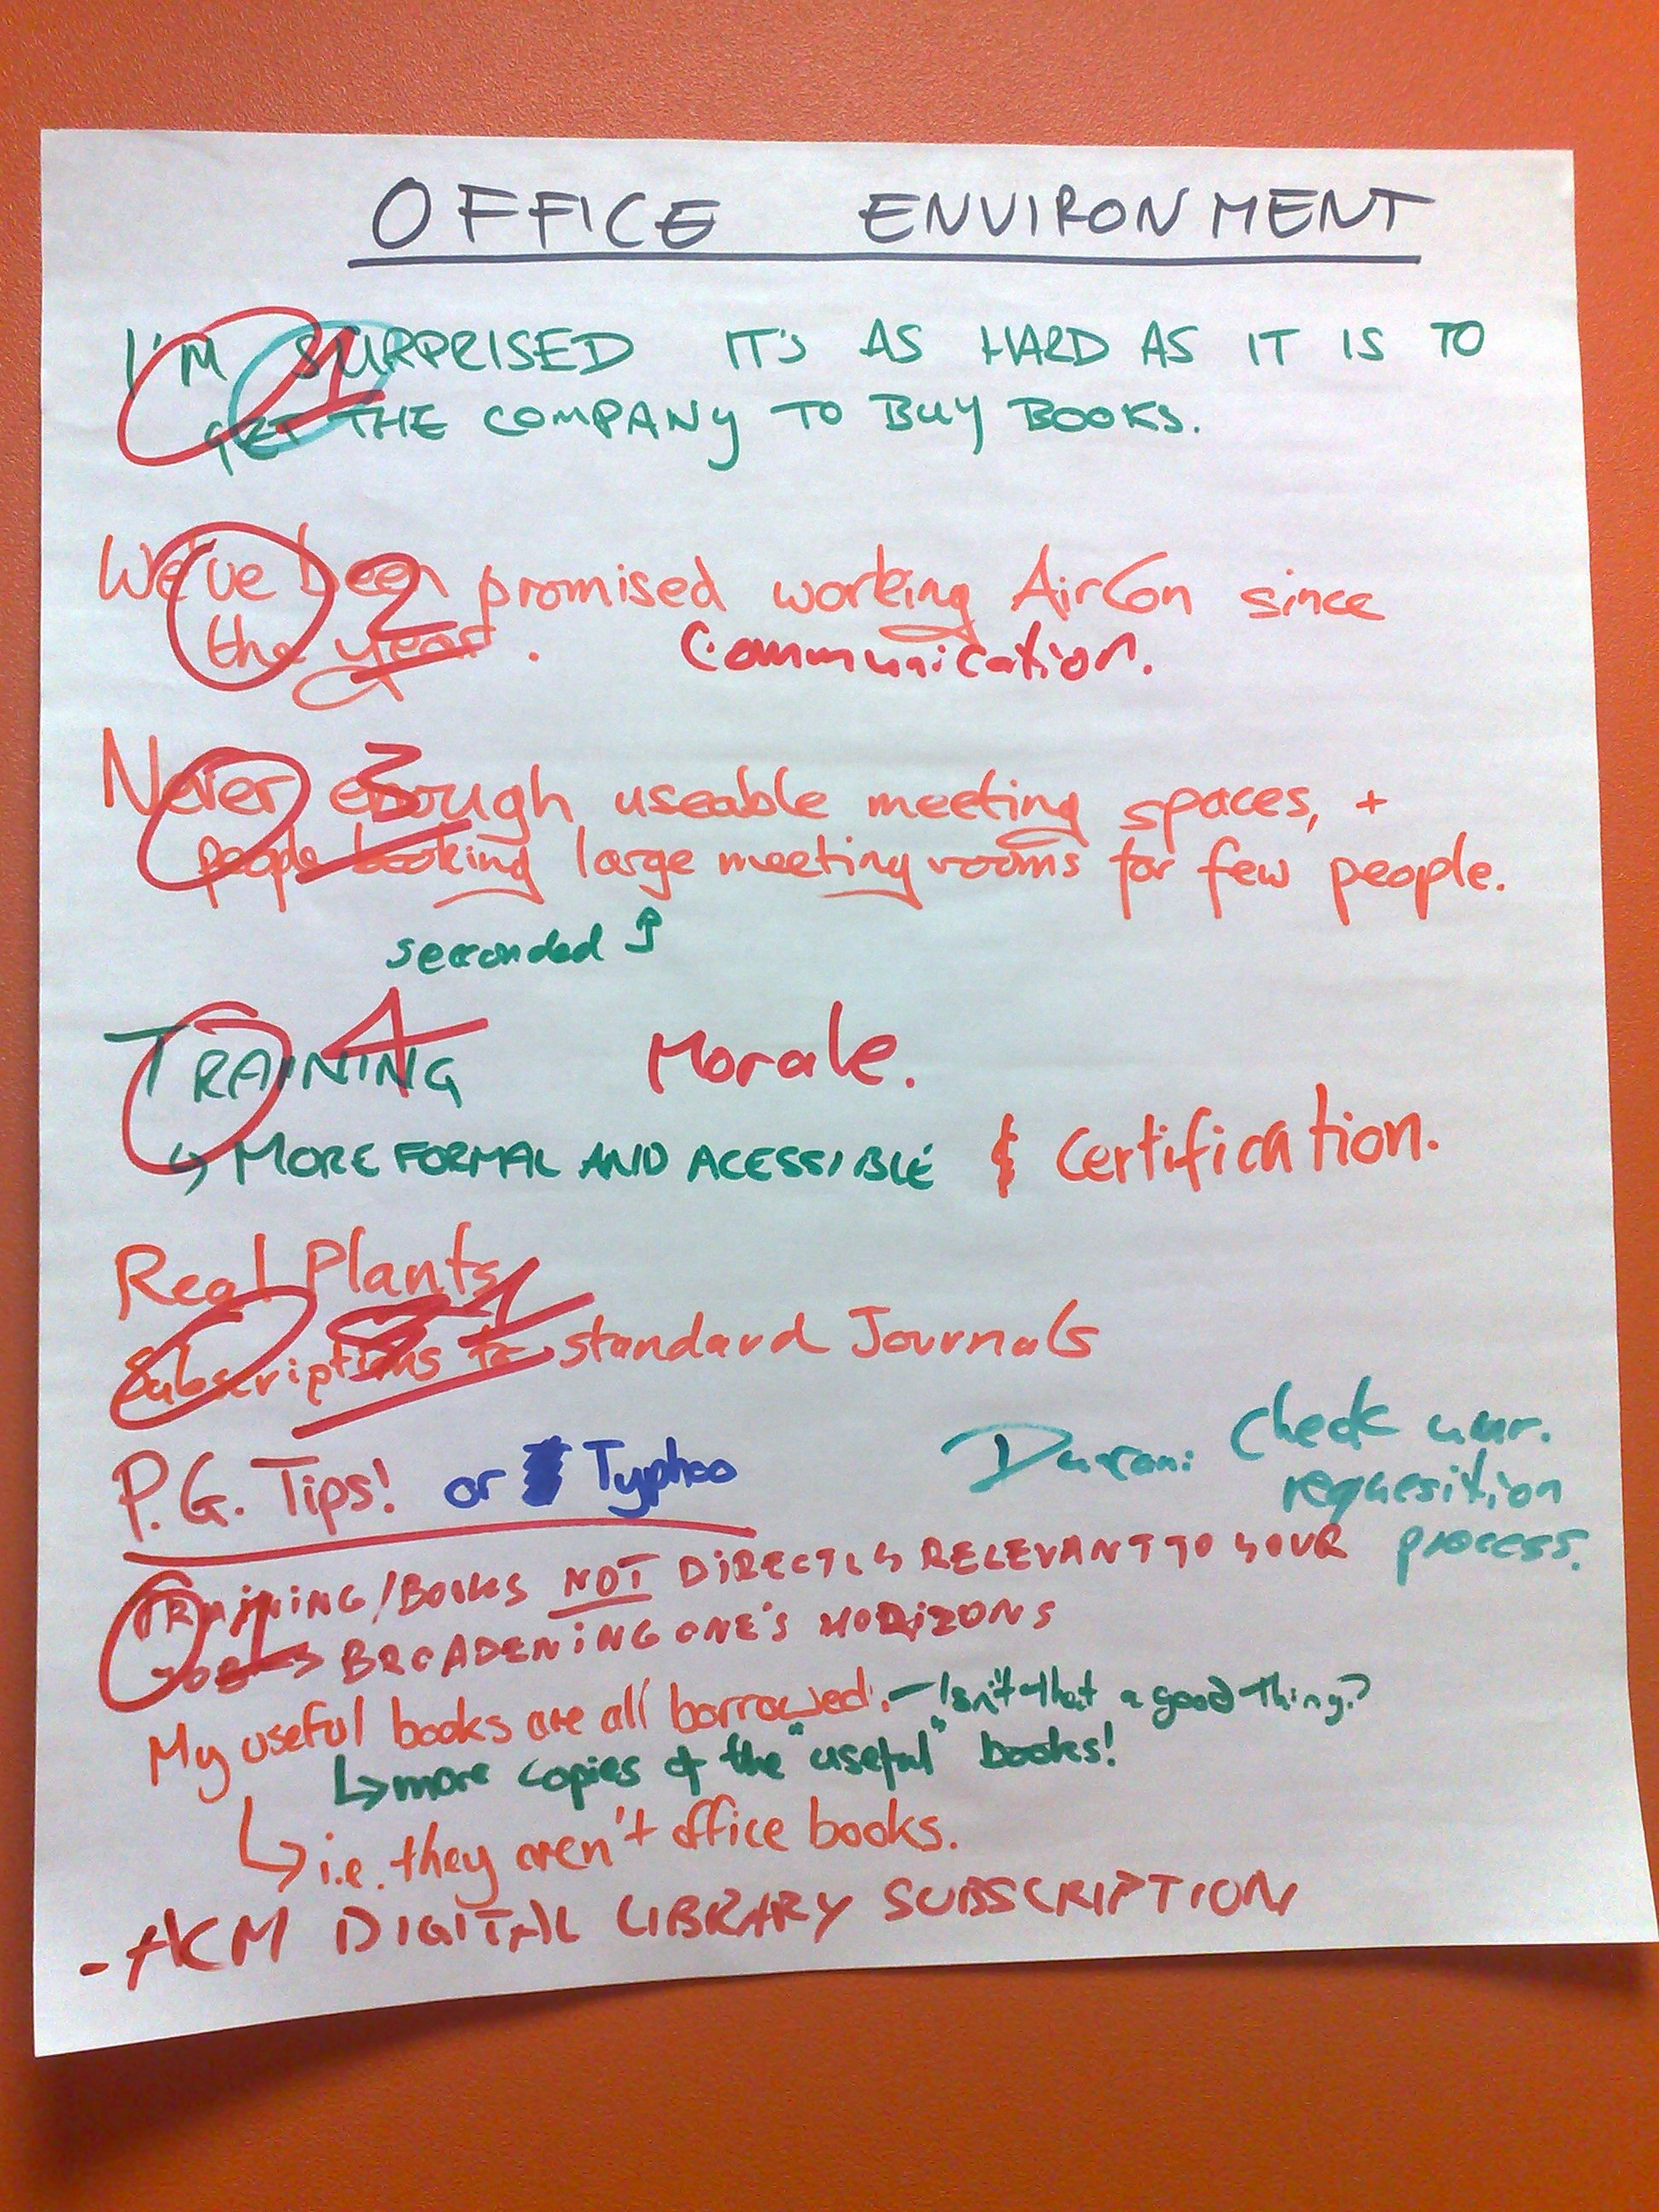 OFFICE ENVIRONMENT
I'M SURPRISED IT'S AS HARD AS IT IS TO
GET THE COMPANY TO BUY BOOKS.
1
We've been promised working AirCon since
the year.
2
Communication.
Never enough useable meeting spaces, +
people booking large meeting rooms for few people.
3
secconded ↑
TRAINING
4
Morale.
↳ MORE FORMAL AND ACESSIBLE & Certification.
Real Plants
Subscriptions to standard Journals
1
P.G. Tips! or Typhoo
check
requesition
process.
TRAINING/BOOKS NOT DIRECTLY RELEVANT TO YOUR
JOB → BROADENING ONE'S HORIZONS
1
My useful books are all borrowed. - Isn't that a good thing?
↳ more copies of the "useful" books!
↳ i.e. they aren't office books.
- ACM DIGITAL LIBRARY SUBSCRIPTION